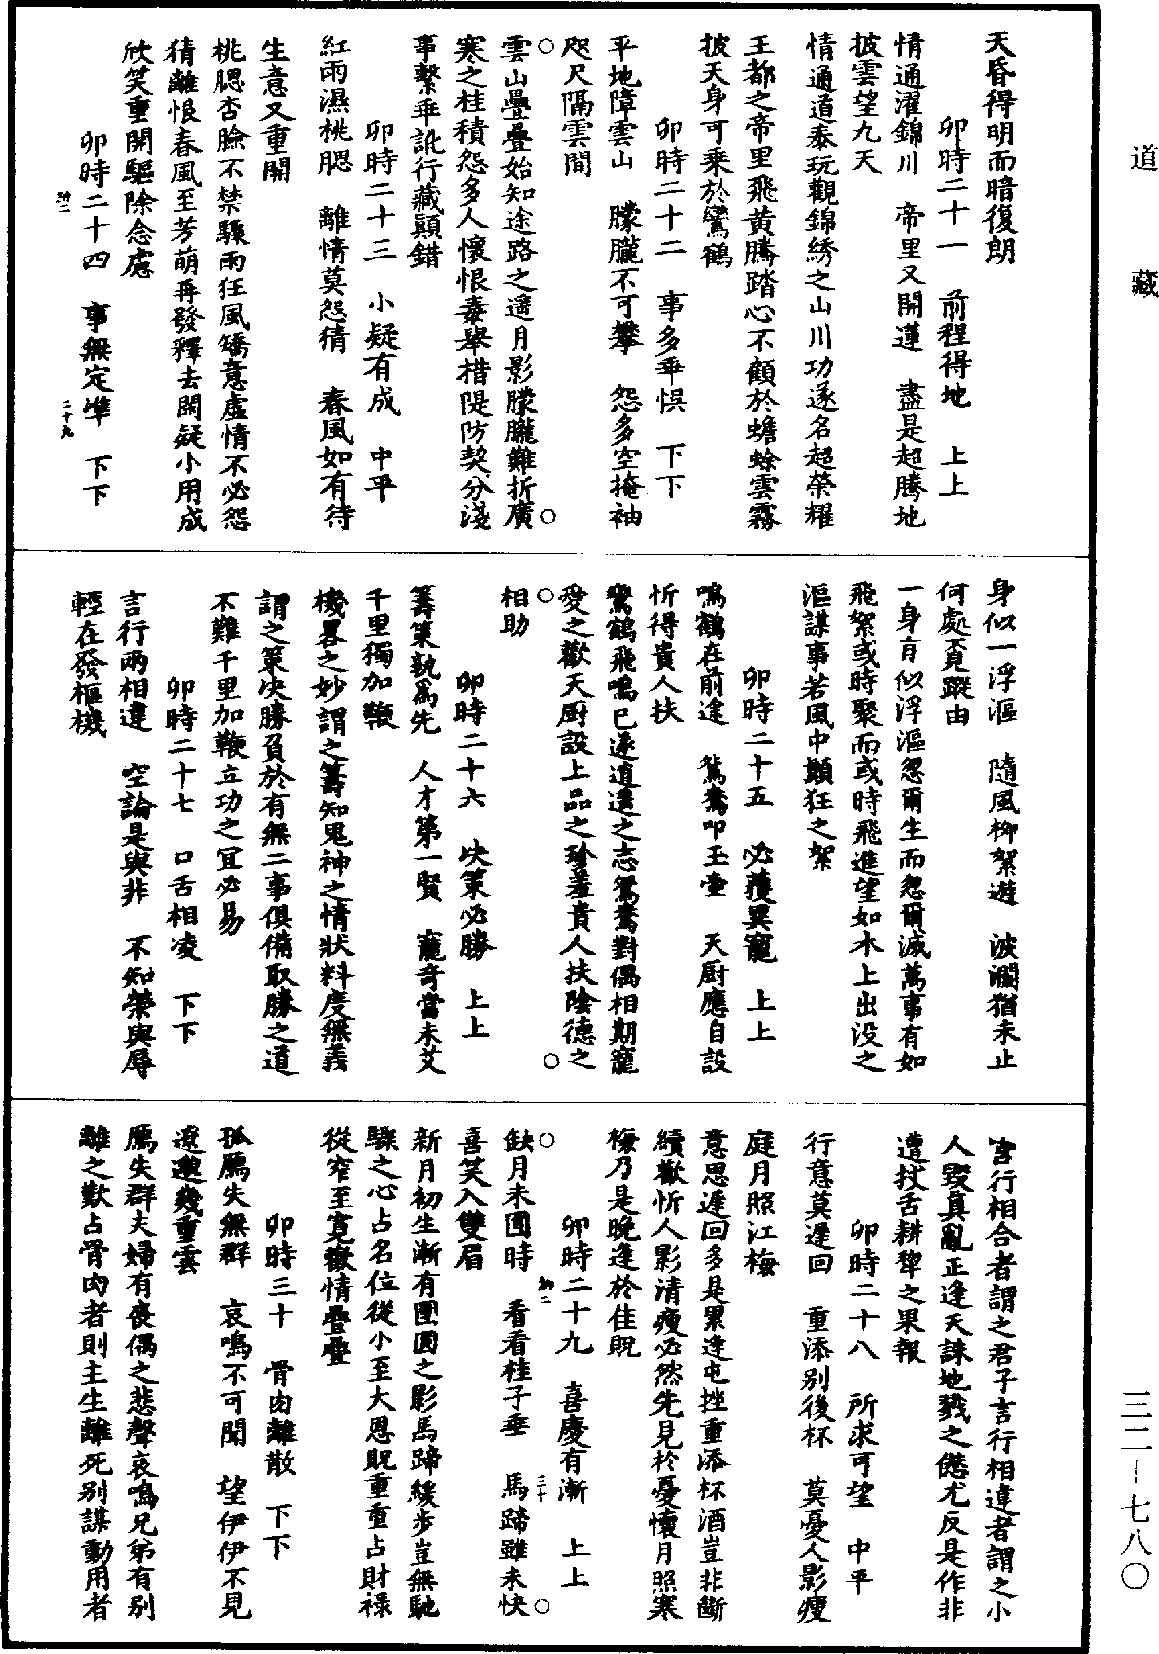 道藏
三二—七八〇
天昏得明而暗復朗
卯時二十一 前程得地 上上
情通濯錦川 帝里又開蓮 盡是超騰地
披雲望九天
情通道泰玩觀錦綉之山川功遂名超榮耀
王都之帝里飛黃騰踏心不顧於蟾蜍雲霧
披天身可乘於鸞鶴
卯時二十二 事多乖悞 下下
平地障雲山 朦朧不可攀 怨多空掩袖
咫尺隔雲間
雲山疊疊始知途路之遥月影朦朧難折廣
寒之桂積怨多人懷恨毒舉措隄防契分淺
事繫乖訛行藏顛錯
卯時二十三 小疑有成 中平
紅雨濕桃腮 離情莫怨猜 春風如有待
生意又重開
桃腮杏臉不禁驟雨狂風矯意虛情不必怨
猜離恨春風至芳萌再發釋去閑疑小用成
欣笑重開驅除念慮
卯時二十四 事無定準 下下
二十九
身似一浮漚 隨風柳絮遊 波瀾猶未止
何處覓蹤由
一身有似浮漚忽爾生而忽爾滅萬事有如
飛絮或時聚而或時飛進望如水上出没之
漚謀事若風中顛狂之絮
卯時二十五 必獲異寵 上上
鳴鶴在前途 鴛鴦叩玉壺 天厨應自設
忻得貴人扶
鸞鶴飛鳴已遂逍遥之志鴛鴦對偶相期寵
愛之歡天厨設上品之珍羞貴人扶陰德之
相助
卯時二十六 决策必勝 上上
籌策孰爲先 人才第一賢 竈奇當未艾
千里獨加鞭
機畧之妙謂之籌知鬼神之情狀料度無義
謂之策决勝負於有無二事俱備取勝之道
不難千里加鞭立功之宜必易
卯時二十七 口舌相凌 下下
言行兩相違 空論是與非 不知榮與辱
輕在發樞機
言行相合者謂之君子言行相違者謂之小
人毀真亂正逢天誅地戮之愆尤反是作非
遭拔舌耕犂之果報
卯時二十八 所求可望 中平
行意莫遲回 重添别後杯 莫憂人影瘦
庭月照江梅
意思遲回多是累逢屯挫重添杯酒豈非斷
續歡忻人影清瘦必然先見於憂懷月照寒
梅乃是晚逢於佳貺
卯時二十九 喜慶有漸 上上
缺月未圓時 看看桂子垂 馬蹄雖未快
三十
喜笑入雙眉
新月初生漸有團圓之影馬蹄緩步豈無馳
驟之心占名位從小至大恩貺重重占財禄
從窄至寬歡情疊疊
卯時三十 骨肉離散 下下
孤鴈失無群 哀鳴不可聞 望伊伊不見
遼邈幾重雲
鴈失群夫婦有喪偶之悲聲哀鳴兄弟有别
離之歎占骨肉者則主生離死别謀動用者